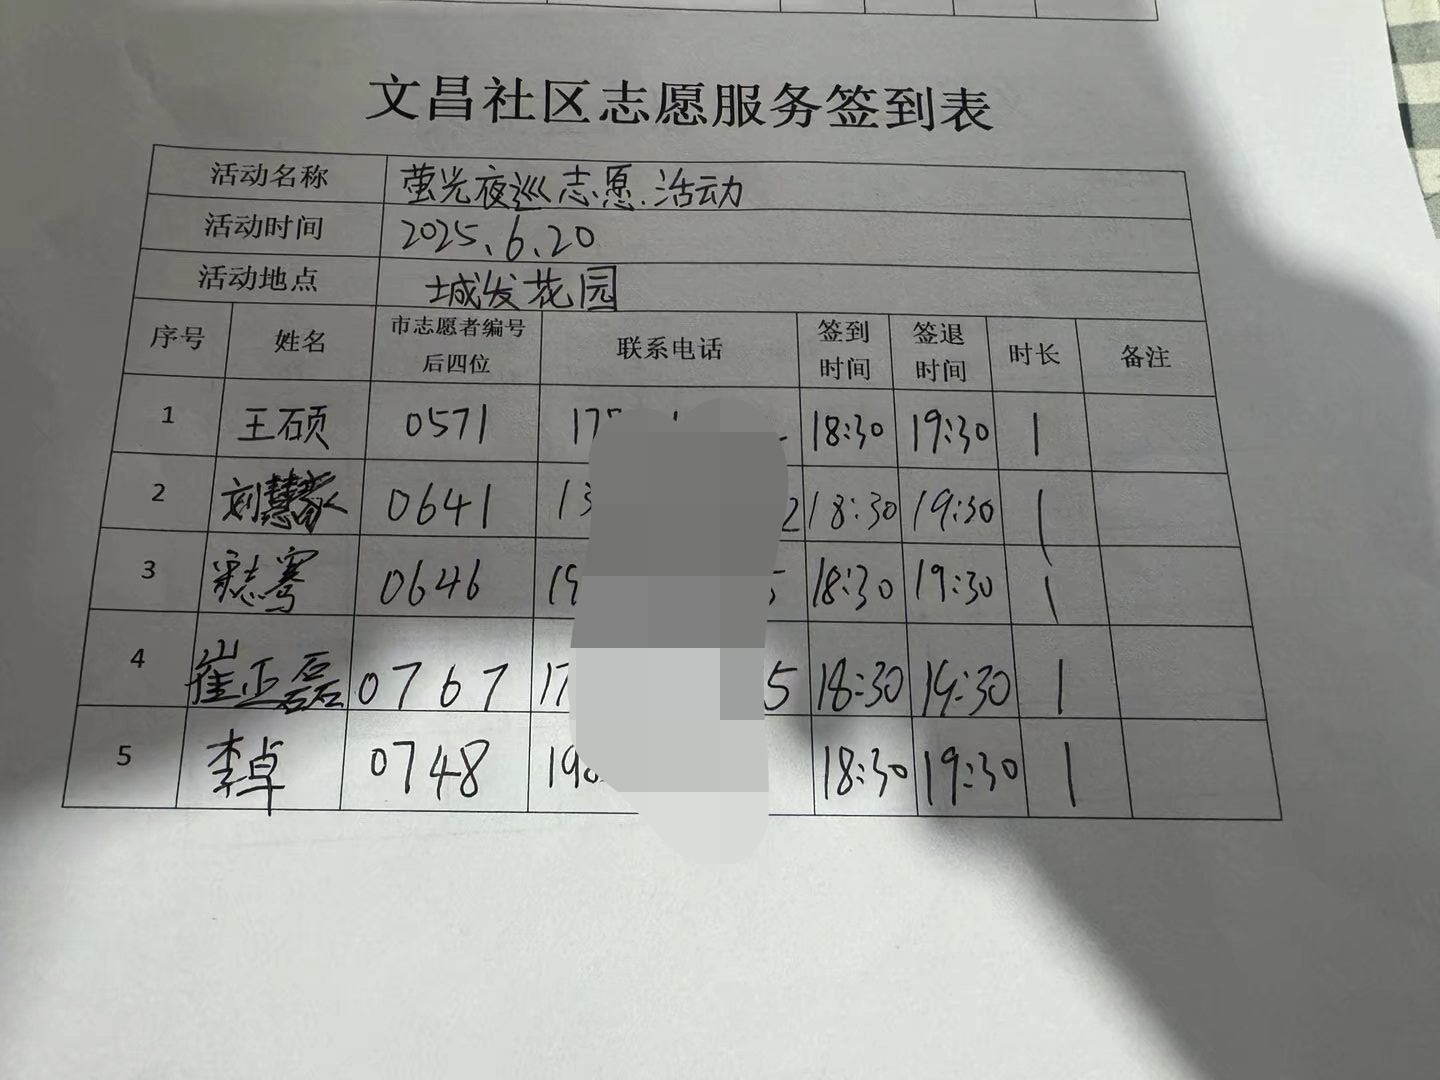 文昌社区志愿服务签到表
活动名称 萤光夜巡志愿活动
活动时间 2025.6.20
活动地点 城发花园
序号 姓名 市志愿者编号后四位 联系电话 签到时间 签退时间 时长 备注
1 王硕 0571 17 18:30 19:30 1
2 刘慧敏 0641 13 2 18:30 19:30 1
3 志骞 0646 19 5 18:30 19:30 1
4 崔正磊 0767 17 5 18:30 19:30 1
5 李卓 0748 198 18:30 19:30 1